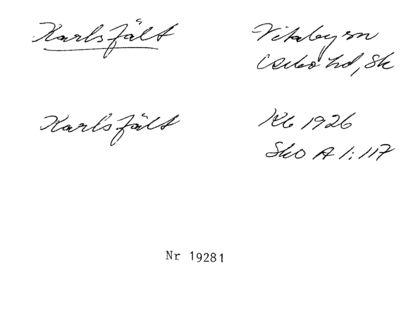 Karlsfält
Vitaby sn
Albo hd, Sk
Karlsfält
Kb 1926
SkO A 1:117
Nr 19281